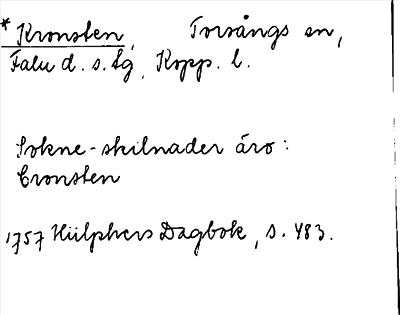 * Kronsten, Torsångs sn,
Falu d. s. lg, Kopp. l.
Sokne-skilnader äro:
Cronsten
1757 Hülphers Dagbok, s. 483.